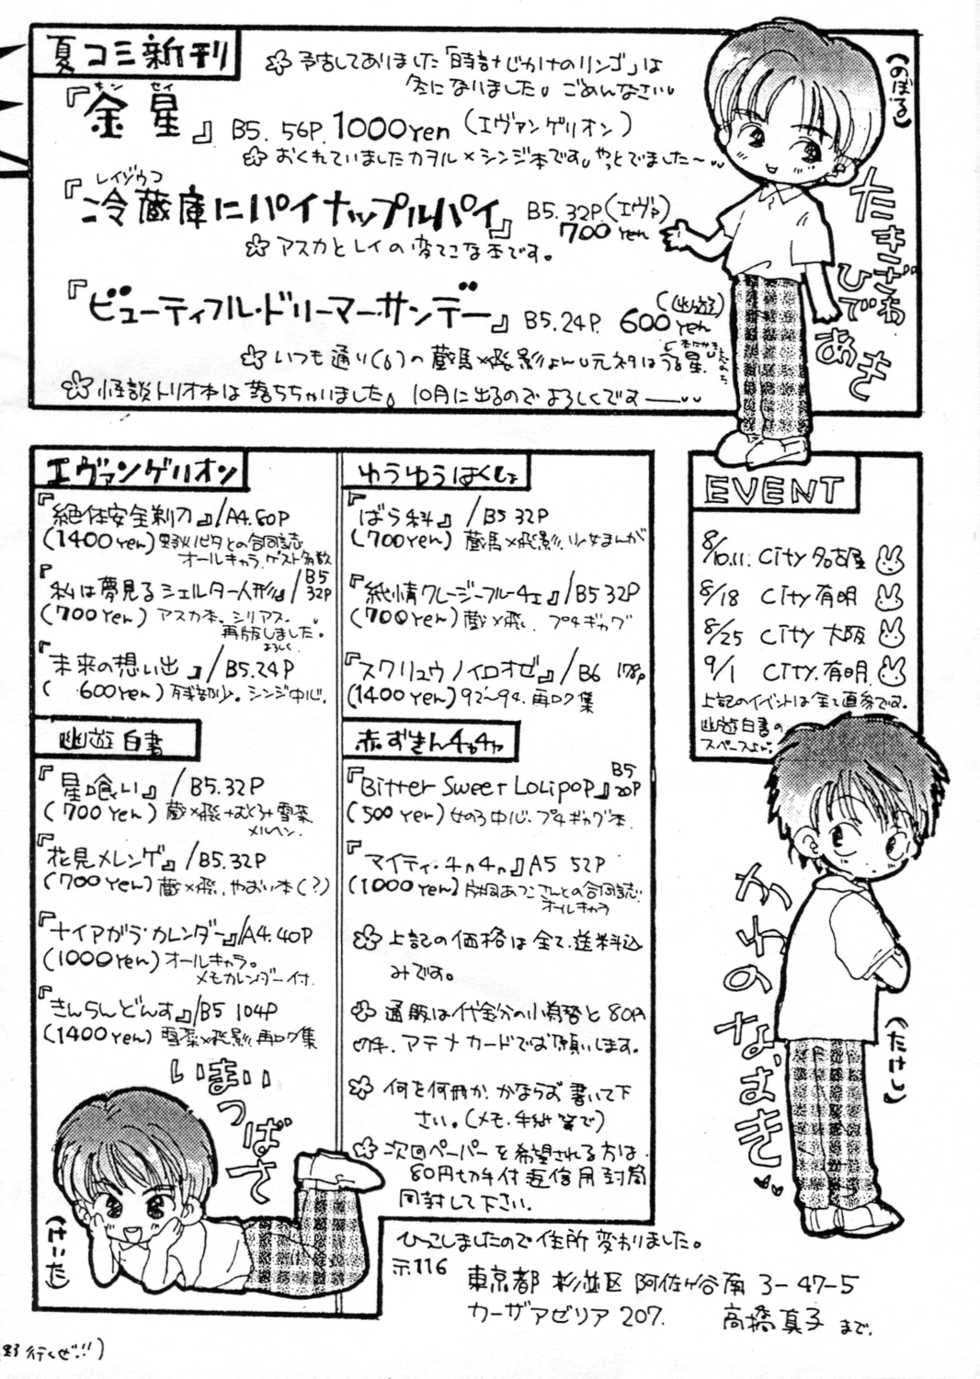 夏コミ新刊
✿予告してありました「時計じかけのリンゴ」は
冬になりました。ごめんなさい
『金星』B5. 56P. 1000yen（エヴァンゲリオン）
キン セイ
✿おくれていましたカヲル×シンジ本です。やっとでました〜
レイゾウコ
『冷蔵庫にパイナップルパイ』B5. 32P（エヴァ）
700 yen
✿アスカとレイの変てこな本です。
『ビューティフル・ドリーマー・サンデー』B5. 24P. 600 yen
（幽遊）
✿いつも通り(6)の蔵馬×飛影よん 元ネタはうる星
✿怪談トリオ本は落ちちゃいました。10月に出るのでよろしくですー
（のぼる）
たきざわ
ひであき
エヴァンゲリオン
『絶体安全剃刀』/A4. 80P
(1400yen) との合同誌
オールキャラ. ゲスト多数
『私は夢見るシェルター人形』/B5 32P
(700yen) アスカ本. シリアス.
再版しました。
よろしく
『未来の想い出』/B5. 24P
( 600yen) 残部少. シンジ中心.
ゆうゆうはくしょ
『ばら科』/B5 32P
(700yen) 蔵馬×飛影. 少女まんが
『純情クレージーフルーツ』/B5 32P
(700yen) 蔵×飛. プチギャグ
『スクリュウノイロオゼ』/B6 178p
(1400yen) 92〜94. 再ロク集
EVENT
8/10.11. City 名古屋
8/18 City 有明
8/25 City 大阪
9/1 City. 有明.
上記のイベントは全て直参です。
幽遊白書の
スペースよん。
幽遊白書
『星喰い』/B5. 32P
(700yen) 蔵×飛+ 雪菜
メルヘン.
『花見メレンゲ』/B5. 32P
(700yen) 蔵×飛. やおい本(？)
『ナイアガラ・カレンダー』/A4. 40P
(1000yen) オールキャラ。
メモカレンダー付.
『きんらんどんす』/B5 104P
(1400yen) 雪菜×飛影 再ロク集
赤ずきんチャチャ
『Bitter Sweet Lolipop』B5 20P
(500yen) 女の子中心. プチギャグ本.
『マイティ・チャチャ』A5 52P
(1000yen) 片岡あつこさんとの合同誌.
オールキャラ
✿上記の価格は全て送料込
みです。
✿通販は代金分の小為替と80円
切手. アテナカードでお願いします。
✿何を何冊か. かならず書いて下
さい。(メモ. 手紙等で)
✿次回ペーパーを希望される方は.
80円切手付返信用封筒
同封して下さい.
いまい
つばさ
（けいた）
かわの
なおき
（たけし）
ひっこしましたので住所変わりました。
〒116
東京都 杉並区 阿佐ヶ谷南 3-47-5
カーザアゼリア 207. 高橋真子 まで.
行くぜ!!）